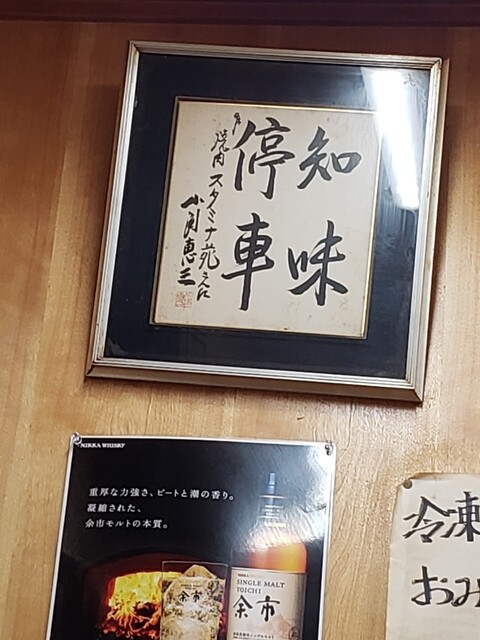 知味
停車
焼肉スタミナ苑さんに
小月恵三
NIKKA WHISKY
重厚な力強さ、ピートと潮の香り。
凝縮された、
余市モルトの本質。
余市
NIKKA
SINGLE MALT
YOICHI
余市
冷凍
おみ